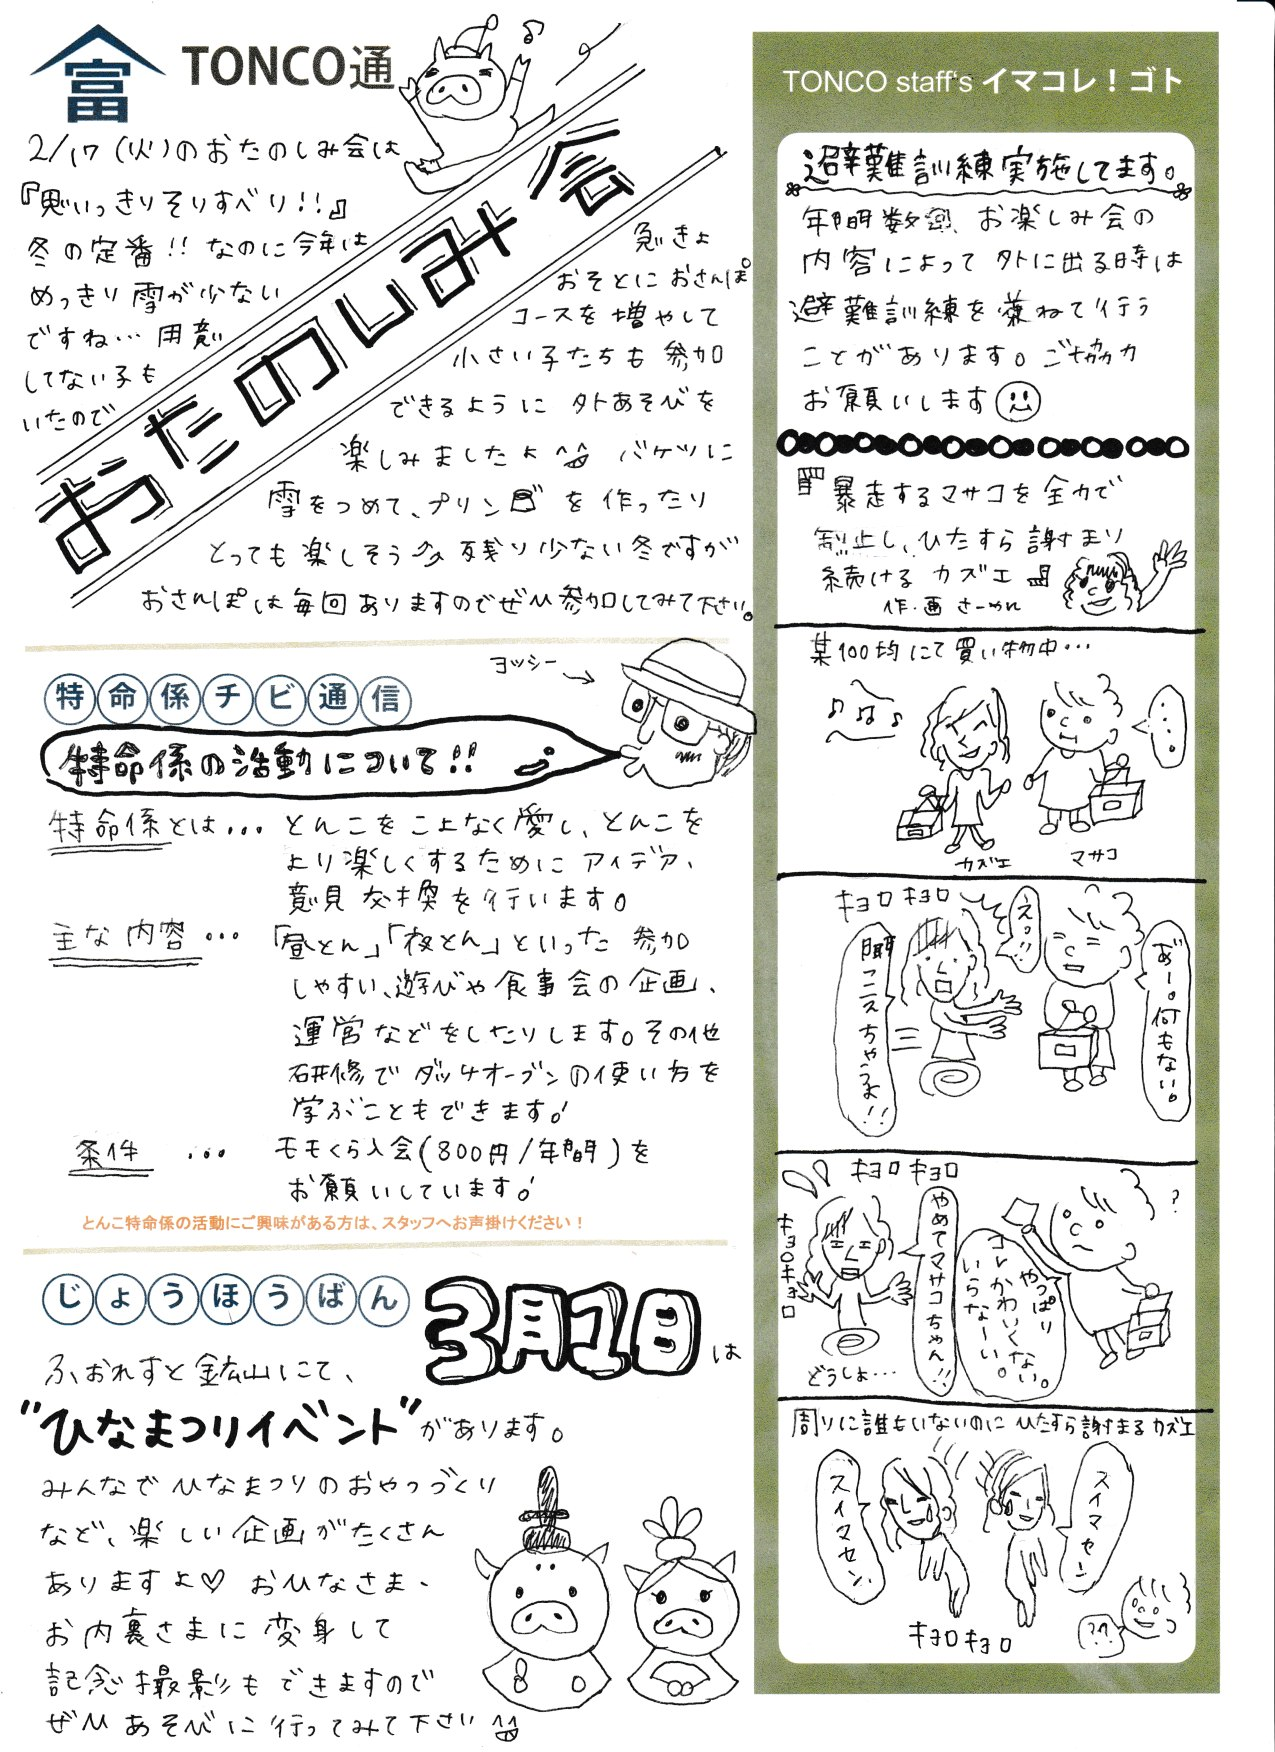 富
TONCO通
おたのしみ会
2/17(火)のおたのしみ会は
『思いっきりそりすべり!!』
冬の定番!!なのに今年は
めっきり雪が少ない
ですね…用意
してない子も
いたので
急きょ
おそとにおさんぽ
コースを増やして
小さい子たちも参加
できるように外あそびを
楽しみましたよ^^
バケツに
雪をつめて、プリンを作ったり
とっても楽しそう♪残り少ない冬ですが
おさんぽは毎回ありますのでぜひ参加してみて下さい。
特命係チビ通信
ヨッシー→
特命係の活動について!!
特命係とは…とんこをこよなく愛し、とんこを
より楽しくするためにアイデア、
意見交換を行います。
主な内容…「昼とん」「夜とん」といった参加
しやすい、遊びや食事会の企画、
運営などをしたりします。その他
研修でダッチオーブンの使い方を
学ぶこともできます!
条件…モモくら入会(800円/年間)を
お願いしています!
とんこ特命係の活動にご興味がある方は、スタッフへお声掛けください!
じょうほうばん
3月1日は
ふぉれすと鉱山にて、
"ひなまつりイベント"があります。
みんなでひなまつりのおやつづくり
など、楽しい企画がたくさん
ありますよ♡おひなさま、
お内裏さまに変身して
記念撮影もできますので
ぜひあそびに行ってみて下さい^^
TONCO staff's イマコレ!ゴト
避難訓練実施してます。
年間数回、お楽しみ会の
内容によって外に出る時は
避難訓練を兼ねて行う
ことがあります。ご協力
お願いします
『暴走するマサコを全力で
制止し、ひたすら謝まり
続けるカズエ』
作・画 さーめん
某100均にて買い物中…
♪♫♪
・・・。
カズエ
マサコ
キョロキョロ
えっ!!
あ゛ー。何もない。
聞こえちゃうよ!!
キョロキョロ
キョロキョロ
?
やっぱり
コレかわいくない。
いらなーい。
やめてマサコちゃん!!
どうしよ…
周りに誰もいないのにひたすら謝まるカズエ
スイマセン
スイマセン
キョロキョロ
??